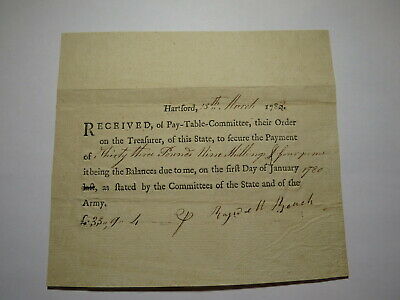 Hartford, 15th March 1782
RECEIVED, of Pay-Table-Committee, their Order
on the Treasurer, of this State, to secure the Payment
of Thirty three Pounds Nine Shillings & four pence
it being the Balances due to me, on the first Day of January 1780
last, as stated by the Committees of the State and of the
Army.
£33,,9,,4